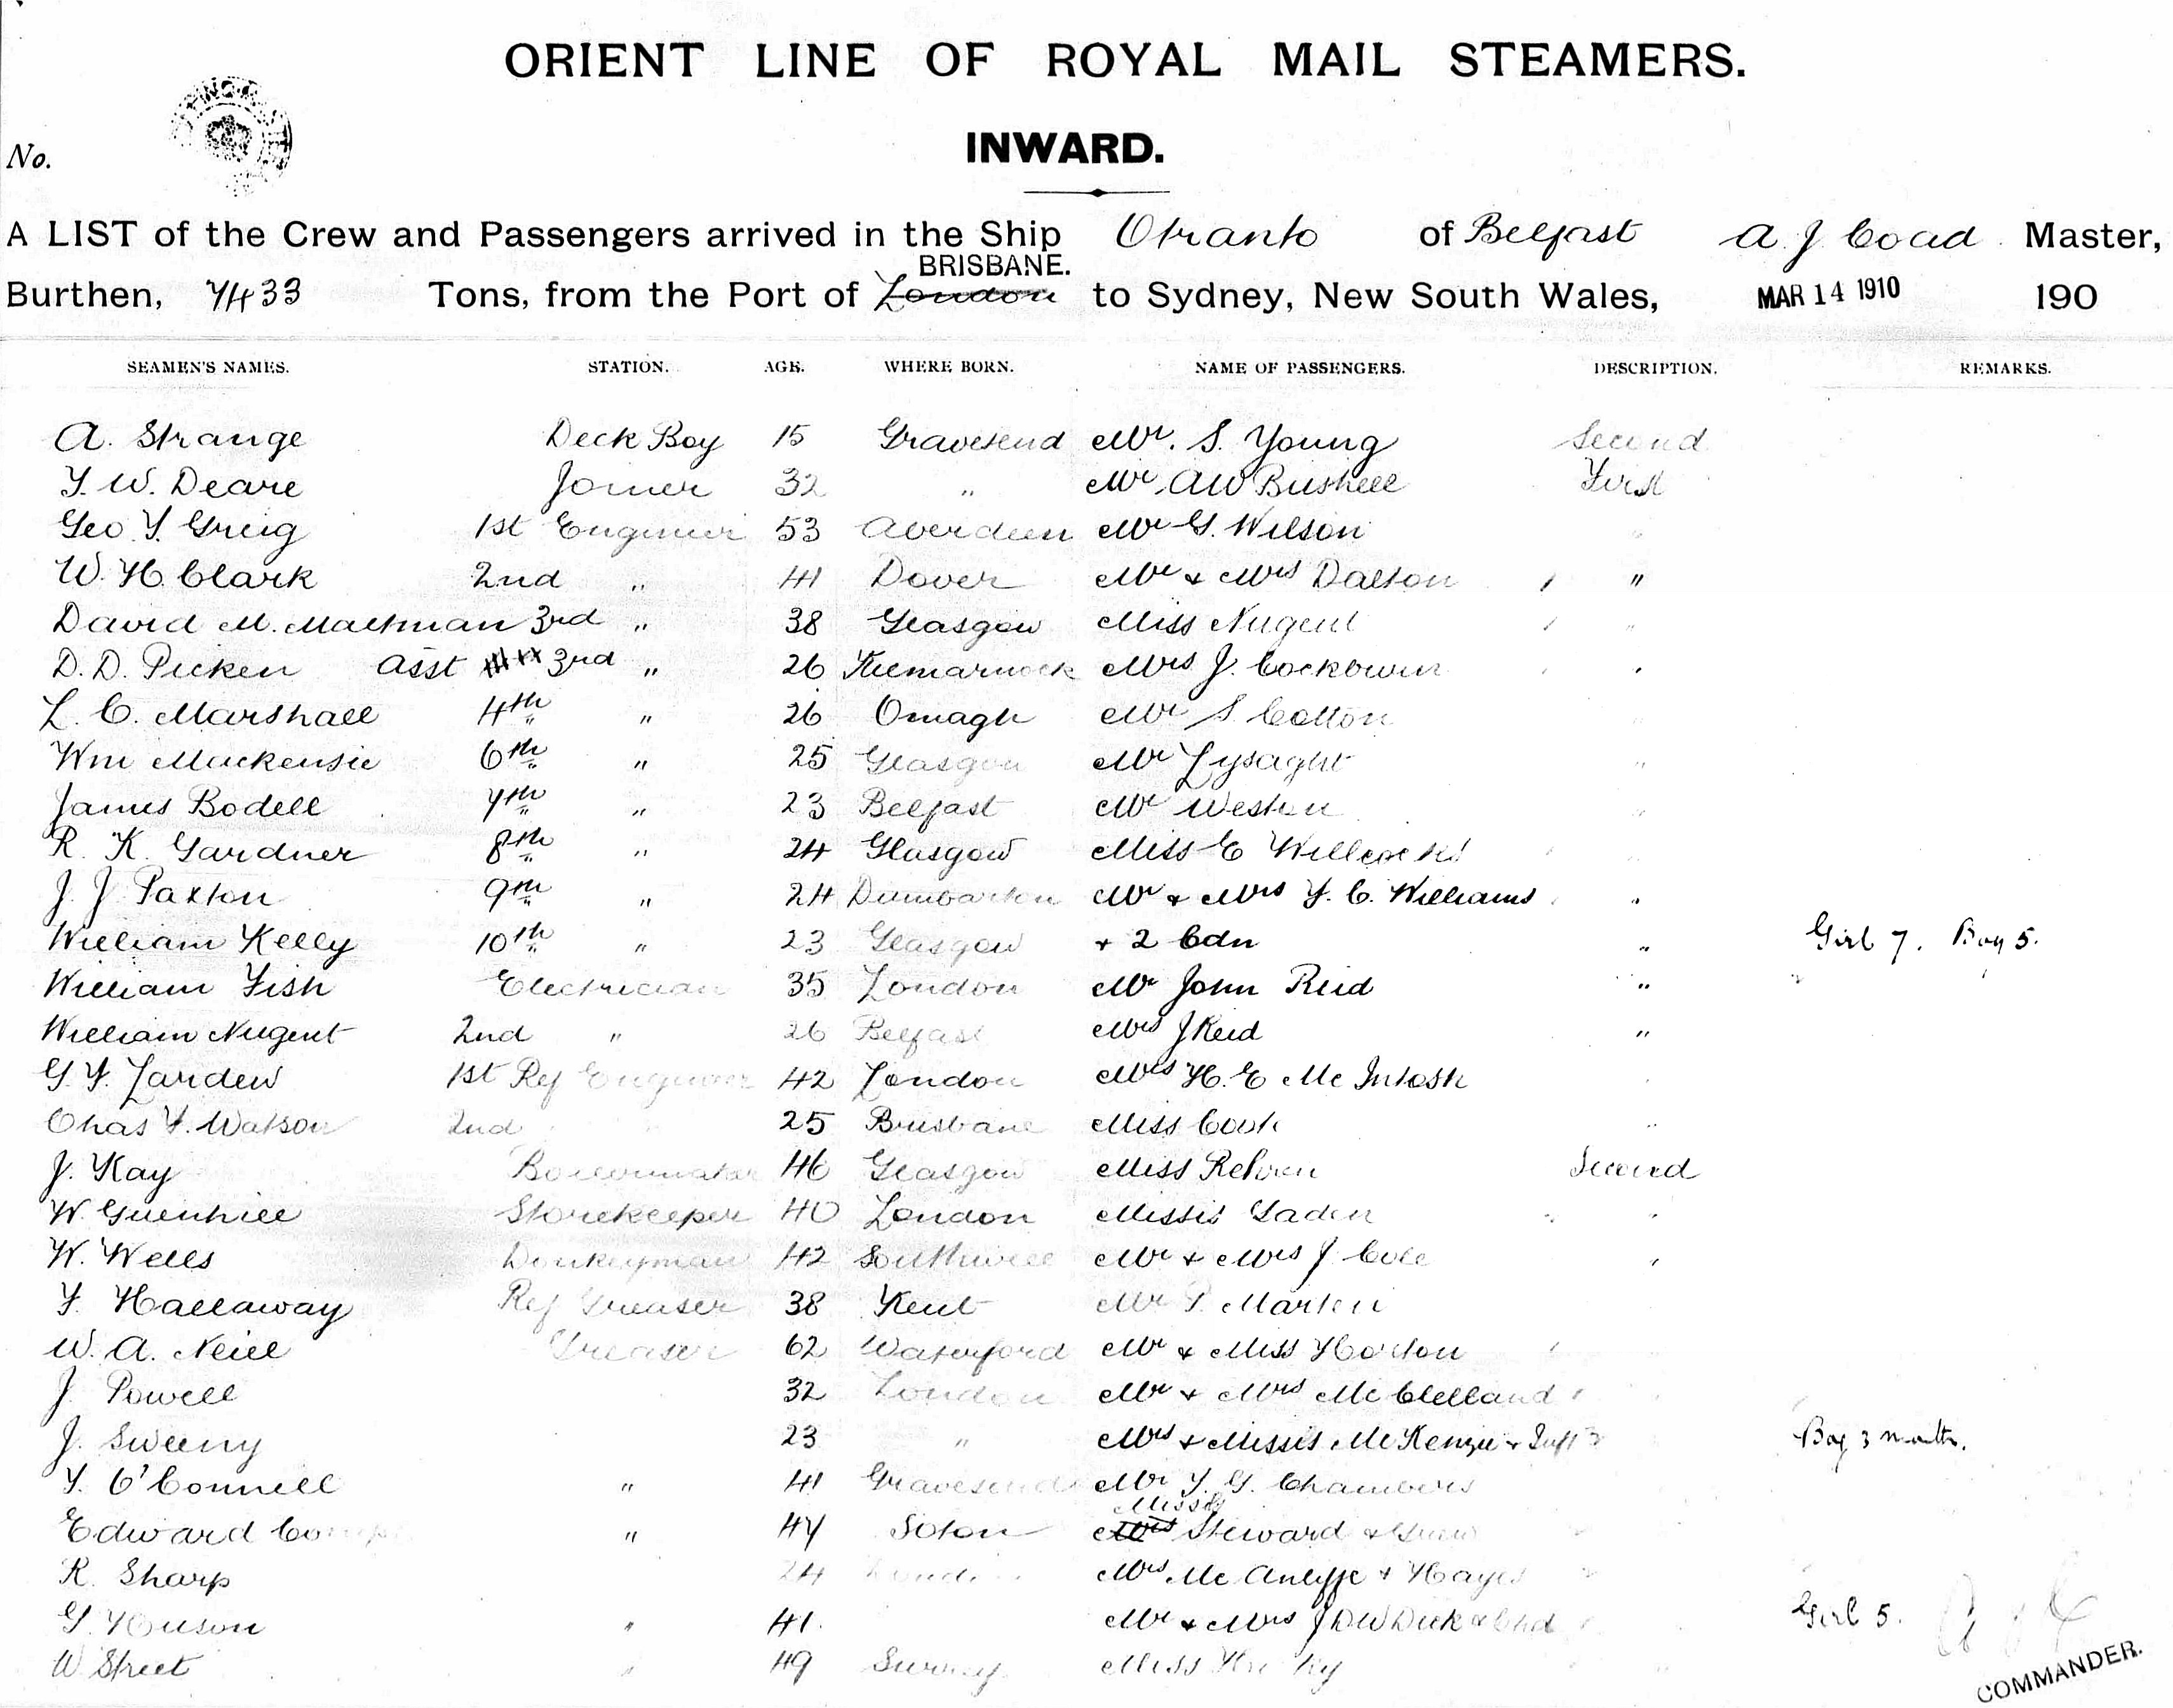 ORIENT LINE OF ROYAL MAIL STEAMERS.
INWARD.
No.
A LIST of the Crew and Passengers arrived in the Ship Otranto of Belfast A. J. Coad Master,
BRISBANE.
Burthen, 7433 Tons, from the Port of London to Sydney, New South Wales, MAR 14 1910 190
SEAMEN'S NAMES. STATION. AGE. WHERE BORN. NAME OF PASSENGERS. DESCRIPTION. REMARKS.
A. Strange Deck Boy 15 Gravesend Mr. S. Young Second
F. W. Deare Joiner 32 " Mr AW Bushell First
Geo F. Greig 1st Engineer 53 Aberdeen Mr G. Wilson "
W. H. Clark 2nd " 41 Dover Mr + Mrs Dalton "
David M. Maltman 3rd " 38 Glasgow Miss Nugent "
D. D. Picken Asst 3rd " 26 Kilmarnock Mrs J. "
L. C. Marshall 4th " 26 Omagh Mr S. Cotton "
Wm Mackensie 6th " 25 Glasgow Mr Lysaght "
James Bodell 7th " 23 Belfast Mr Weston "
R. K. Gardner 8th " 24 Glasgow Miss E Willcocks "
J. J. Paxton 9th " 24 Dumbarton Mr + Mrs F. C. Williams "
William Kelly 10th " 23 Glasgow + 2 Cdn " Girl 7. Boy 5.
William Fish Electrician 35 London Mr John Reid "
William Nugent 2nd " 26 Belfast Mrs J Reid "
G. F. Larden 1st Ref Engineer 42 London Mrs H. E Mc Intosh
Chas F. Watson 2nd 25 Brisbane Miss "
J. Kay Boilermaker 46 Glasgow Miss Second
W. Greenhill Storekeeper 40 London Misses "
W. Wells Donkeyman 42 Southwell Mr + Mrs J. Cole "
F. Hallaway Ref Greaser 38 Kent Mr P. Martin
W. A. Neill Greaser 62 Waterford Mr + Miss Horton
J. Powell 32 London Mr + Mrs Mc Clelland
J. Sweeny 23 " Mrs + Misses McKenzie + Inft Boy 3 months.
F. O'Connell " 41 Gravesend Mr F. G. Chambers
Edward " 47 Soton Steward
R. Sharp 24 London Mrs Mc Auliffe + Hayes
G. " 41. Mr + Mrs J D W Dick + Chd Girl 5.
W Street " 49 Surrey Miss
COMMANDER.